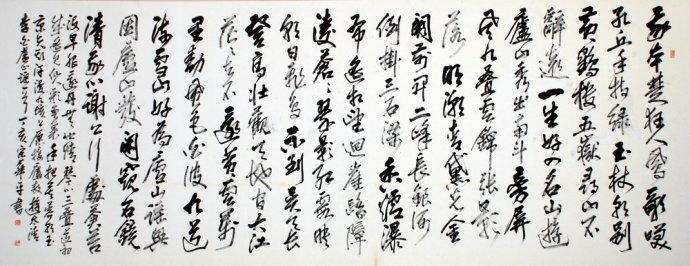 我本楚狂人鳳歌笑
孔丘手持綠玉杖朝別
黃鶴樓五嶽尋仙不
辭遠一生好入名山遊
廬山秀出南斗旁屏
風九疊雲錦張影
落明湖青黛光金
闕前開二峰長銀河
倒掛三石梁香爐瀑
布遙相望迴崖沓障
凌蒼蒼翠影紅霞映
朝日飛鳥不到吳天長
登高壯觀天地間大江
茫茫去不還黃雲萬
里動風色白波九道
流雪山好為廬山謠興
因廬山發閑窺石鏡
清我心謝公行處蒼苔
沒早服還丹無世情琴心三疊道初
成遙見仙人彩雲裏手把芙蓉朝玉
京先期汗漫九垓上願接盧敖遊太清
李白廬山謠一首丁亥華平書